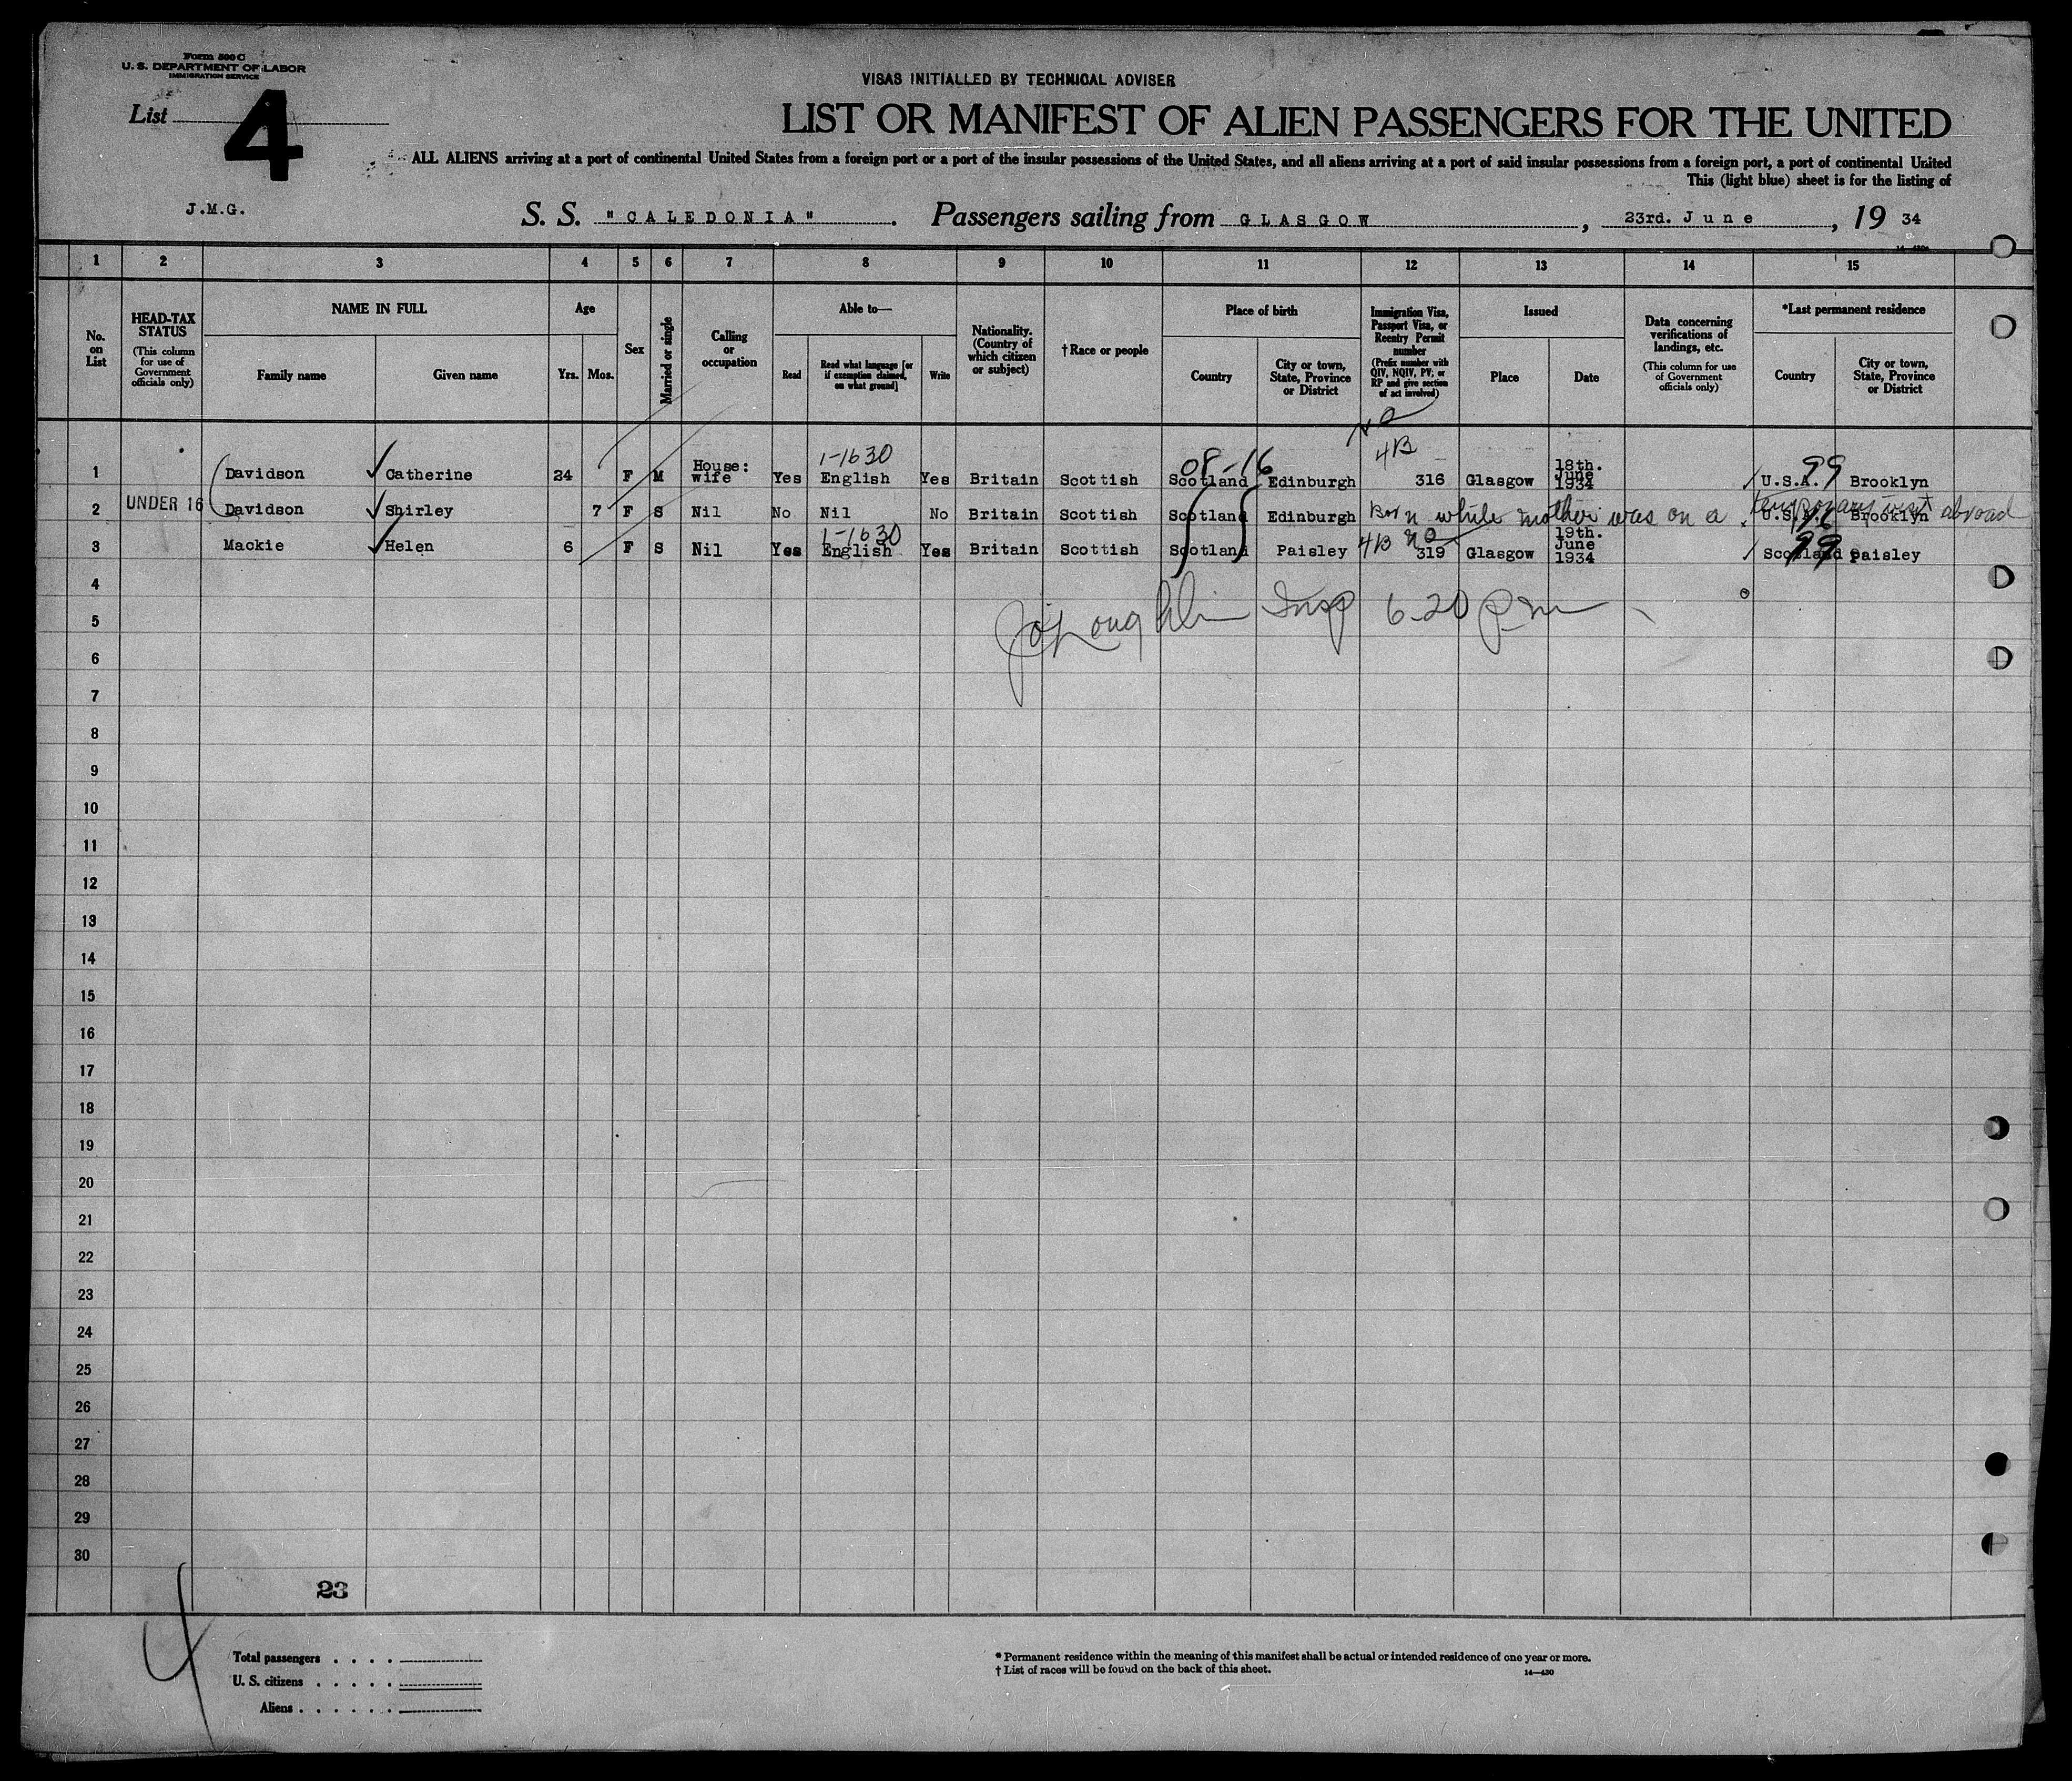 Form 500 C
U. S. DEPARTMENT OF LABOR
IMMIGRATION SERVICE
VISAS INITIALLED BY TECHNICAL ADVISER
List 4
LIST OR MANIFEST OF ALIEN PASSENGERS FOR THE UNITED
ALL ALIENS arriving at a port of continental United States from a foreign port or a port of the insular possessions of the United States, and all aliens arriving at a port of said insular possessions from a foreign port, a port of continental United
This (light blue) sheet is for the listing of
J.M.G.
S. S. "CALEDONIA". Passengers sailing from GLASGOW, 23rd. June, 19 34
1 2 3 4 5 6 7 8 9 10 11 12 13 14 15
No. on List
HEAD-TAX STATUS (This column for use of Government officials only)
NAME IN FULL
Family name
Given name
Age
Yrs.
Mos.
Sex
Married or single
Calling or occupation
Able to—
Read
Read what language [or if exemption claimed, on what ground]
Write
Nationality. (Country of which citizen or subject)
†Race or people
Place of birth
Country
City or town, State, Province or District
Immigration Visa, Passport Visa, or Reentry Permit number (Prefix number with QIV, NQIV, PV, or RP and give section of act involved)
Issued
Place
Date
Data concerning verifications of landings, etc. (This column for use of Government officials only)
*Last permanent residence
Country
City or town, State, Province or District
1-1630 08-16 4B 99
1 Davidson Catherine 24 F M House: wife Yes English Yes Britain Scottish Scotland Edinburgh 316 Glasgow 18th. June 1934 U.S.A. Brooklyn
2 UNDER 16 Davidson Shirley 7 F S Nil No Nil No Britain Scottish Scotland Edinburgh Born while mother was on a temporary visit abroad U.S.A. Brooklyn
1-1630 4B 99
3 Mackie Helen 6 F S Nil Yes English Yes Britain Scottish Scotland Paisley 319 Glasgow 19th. June 1934 Scotland Paisley
4
Insp 6-20 pm
5
6
7
8
9
10
11
12
13
14
15
16
17
18
19
20
21
22
23
24
25
26
27
28
29
30
23
4
Total passengers . . . .
U. S. citizens . . . . .
Aliens . . . . . .
* Permanent residence within the meaning of this manifest shall be actual or intended residence of one year or more.
† List of races will be found on the back of this sheet.
14—430